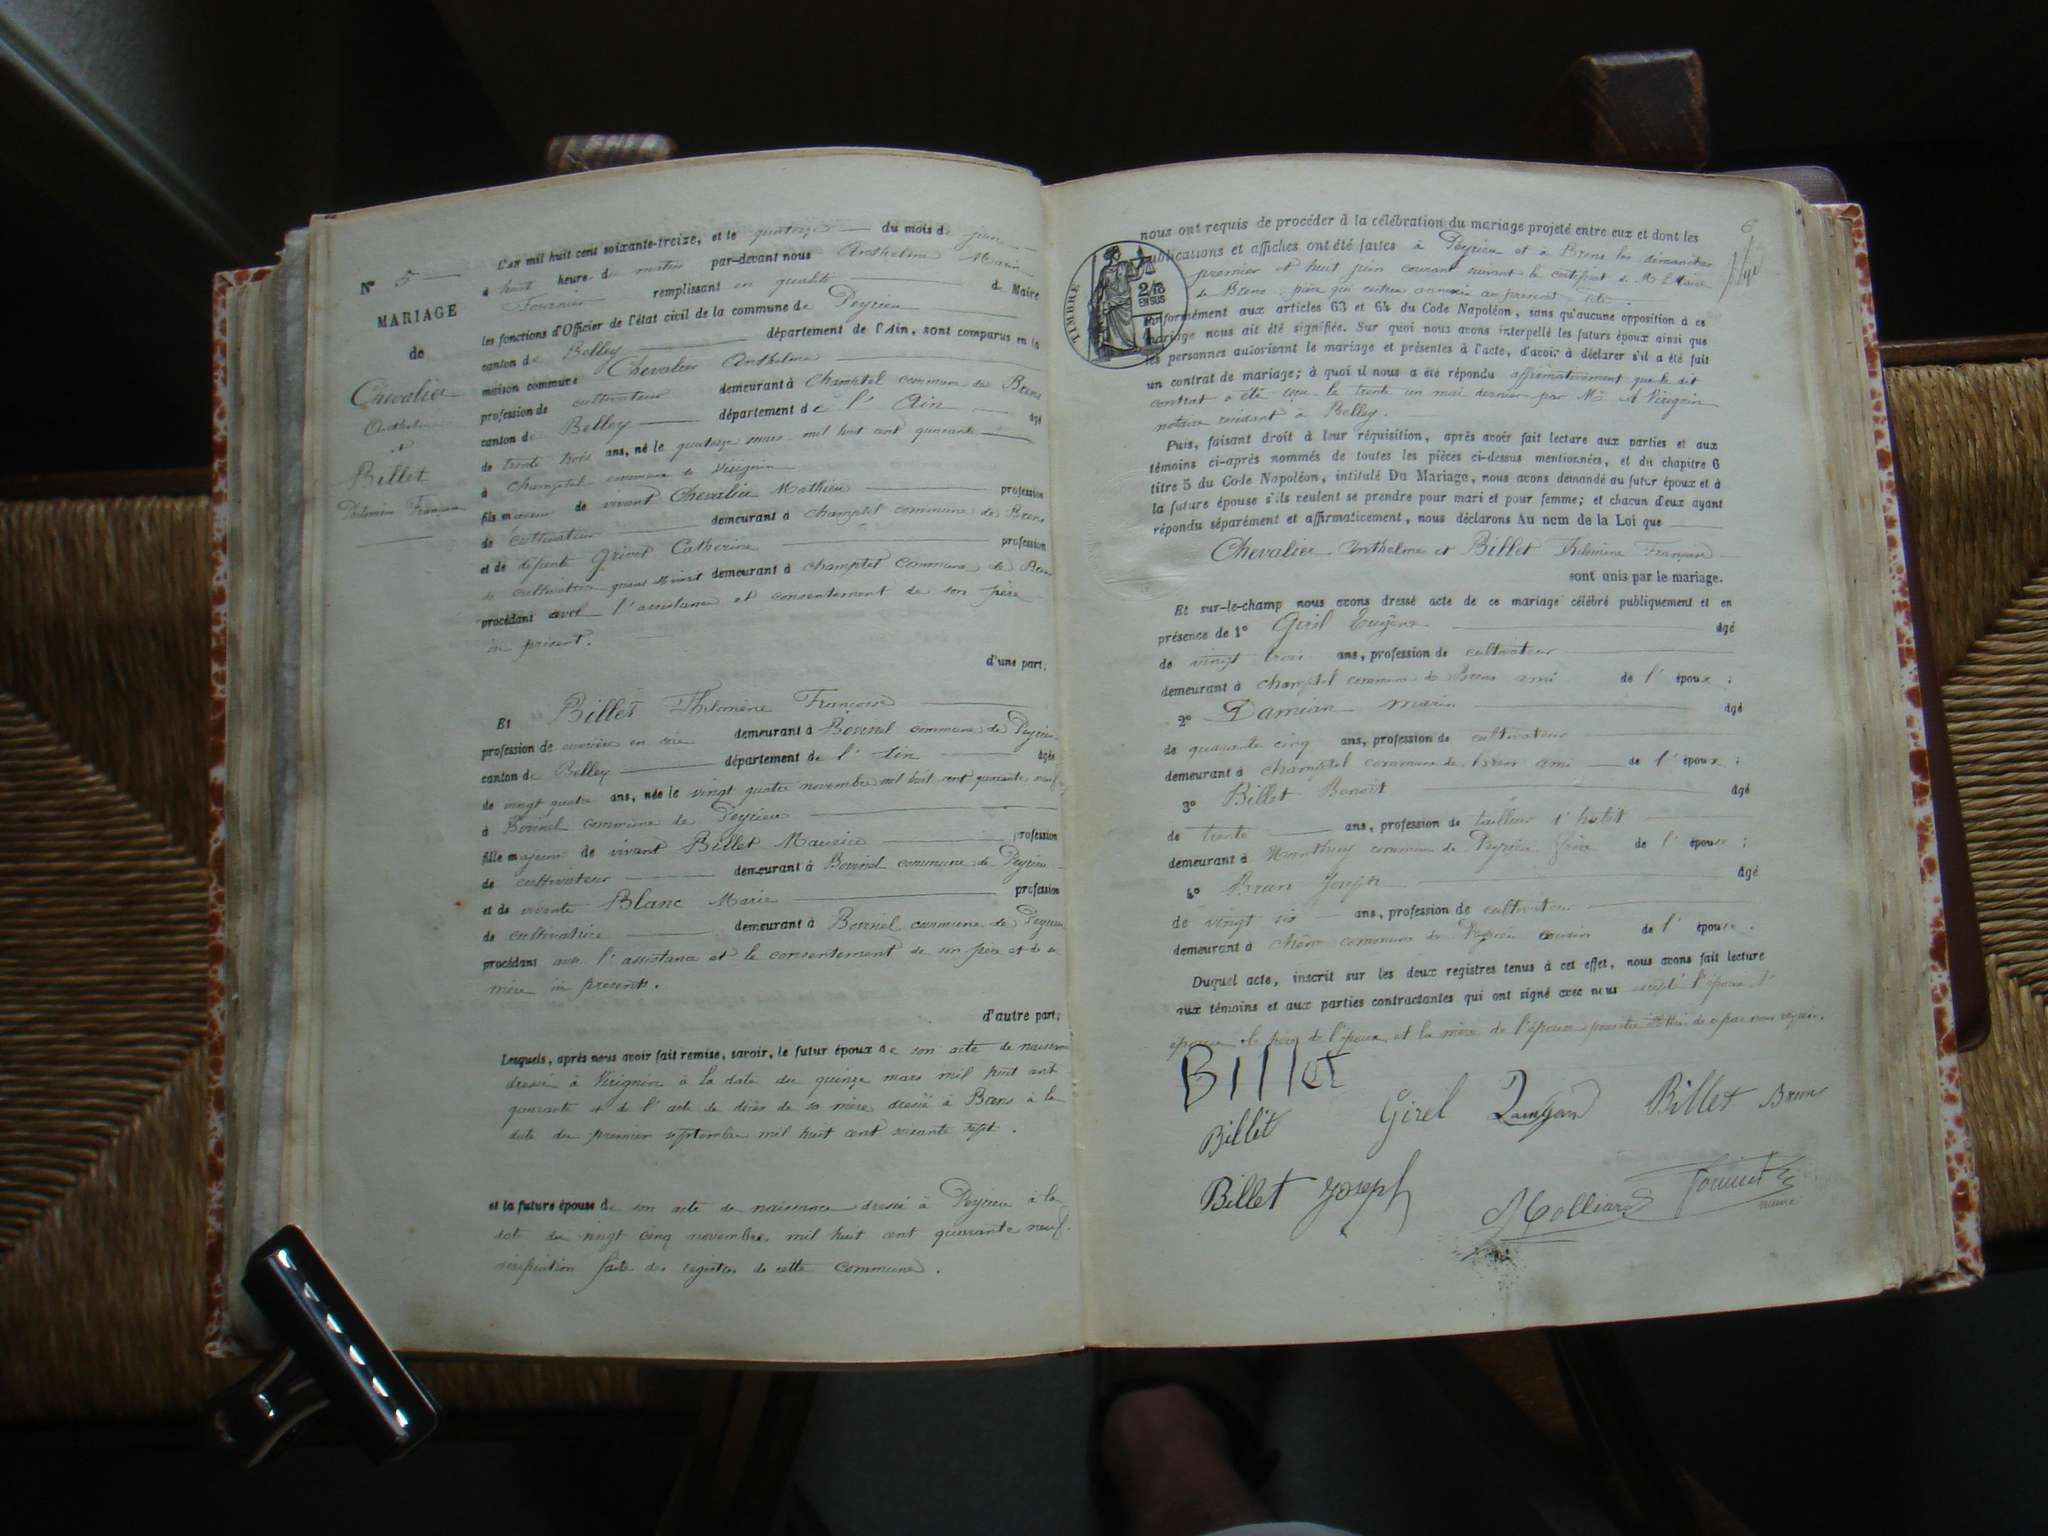 N° 5
MARIAGE
de
Chevalier
Anthelme
et
Billet
Philomène Françoise
L'an mil huit cent soixante-treize, et le quatorze du mois de juin
à huit heure du matin par-devant nous Anthelme Marin
Fournier remplissant en qualité de Maire
les fonctions d'Officier de l'état civil de la commune de Peyrieu
canton de Belley département de l'Ain, sont comparus en la
maison commune Chevalier Anthelme
profession de cultivateur demeurant à Champtel commune de Brens
canton de Belley département de l'Ain âgé
de trente trois ans, né le quatorze mars mil huit cent quarante
à Champtel commune de Virignin
fils majeur de vivant Chevalier Mathieu profession
de cultivateur demeurant à Champtel commune de Brens
et de défunte Grivet Catherine profession
de cultivatrice quand vivait demeurant à Champtel commune de Brens
procédant avec l'assistance et consentement de son père
ici présent.
d'une part.
Et Billet Philomène Françoise
profession de ouvrière en soie demeurant à Bovinel commune de Peyrieu
canton de Belley département de l'Ain âgée
de vingt quatre ans, née le vingt quatre novembre mil huit cent quarante neuf
à Bovinel commune de Peyrieu
fille majeure de vivant Billet Maurice profession
de cultivateur demeurant à Bovinel commune de Peyrieu
et de vivante Blanc Marie profession
de cultivatrice demeurant à Bovinel commune de Peyrieu
procédant avec l'assistance et le consentement de son père et de sa
mère ici présents.
d'autre part;
Lesquels, après nous avoir fait remise, savoir, le futur époux de son acte de naissance
dressé à Virignin à la date du quinze mars mil huit cent
quarante et de l'acte de décès de sa mère dressé à Brens à la
date du premier septembre mil huit cent soixante sept.
et la future épouse de son acte de naissance dressé à Peyrieu à la
date du vingt cinq novembre mil huit cent quarante neuf.
vérification faite des registres de cette commune.
6
nous ont requis de procéder à la célébration du mariage projeté entre eux et dont les
publications et affiches ont été faites à Peyrieu et à Brens les dimanches
premier et huit juin courant suivant le certificat de M. le Maire
de Brens pièce qui restera annexée au présent acte.
conformément aux articles 63 et 64 du Code Napoléon, sans qu'aucune opposition à ce
mariage nous ait été signifiée. Sur quoi nous avons interpellé les futurs époux ainsi que
les personnes autorisant le mariage et présentes à l'acte, d'avoir à déclarer s'il a été fait
un contrat de mariage; à quoi il nous a été répondu affirmativement que le dit
contrat a été reçu le trente un mai dernier par Me
notaire résidant à Belley.
TIMBRE
2/10
EN SUS
1
Puis, faisant droit à leur réquisition, après avoir fait lecture aux parties et aux
témoins ci-après nommés de toutes les pièces ci-dessus mentionnées, et du chapitre 6
titre 5 du Code Napoléon, intitulé Du Mariage, nous avons demandé au futur époux et à
la future épouse s'ils veulent se prendre pour mari et pour femme; et chacun d'eux ayant
répondu séparément et affirmativement, nous déclarons Au nom de la Loi que
Chevalier Anthelme et Billet Philomène Françoise
sont unis par le mariage.
Et sur-le-champ nous avons dressé acte de ce mariage célébré publiquement et en
présence de 1° Girel Eugène âgé
de vingt trois ans, profession de cultivateur
demeurant à Champtel commune de Brens ami de l'époux;
2° Damian Marin âgé
de quarante cinq ans, profession de cultivateur
demeurant à Champtel commune de Brens ami de l'époux;
3° Billet Benoît âgé
de trente ans, profession de tailleur d'habit
demeurant à commune de Peyrieu frère de l'épouse;
4° Brun Joseph âgé
de vingt six ans, profession de cultivateur
demeurant à commune de Peyrieu cousin de l'épouse.
Duquel acte, inscrit sur les deux registres tenus à cet effet, nous avons fait lecture
aux témoins et aux parties contractantes qui ont signé avec nous excepté l'époux l'
épouse le père de l'époux et la mère de l'épouse pour être illettrés de ce par nous requis.
Billet
Billet Girel Damian Billet Brun
Billet Joseph Molliard Fournier
maire